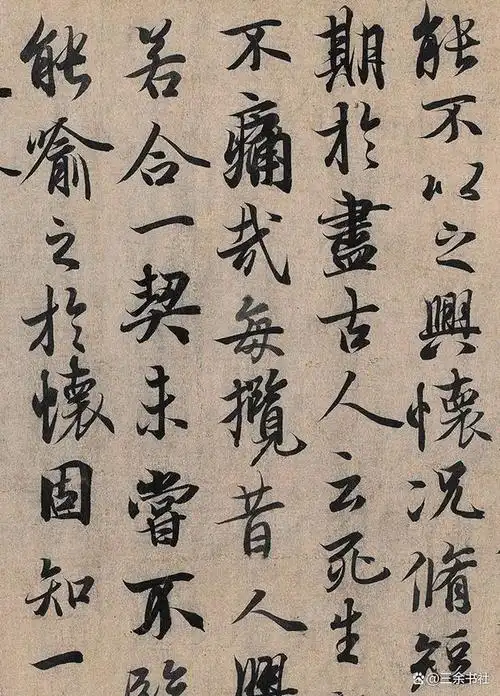 能不以之興懷况脩短
期於盡古人云死生
不痛哉每攬昔人興
若合一契未嘗不臨
能喻之於懷固知一
@三余书社